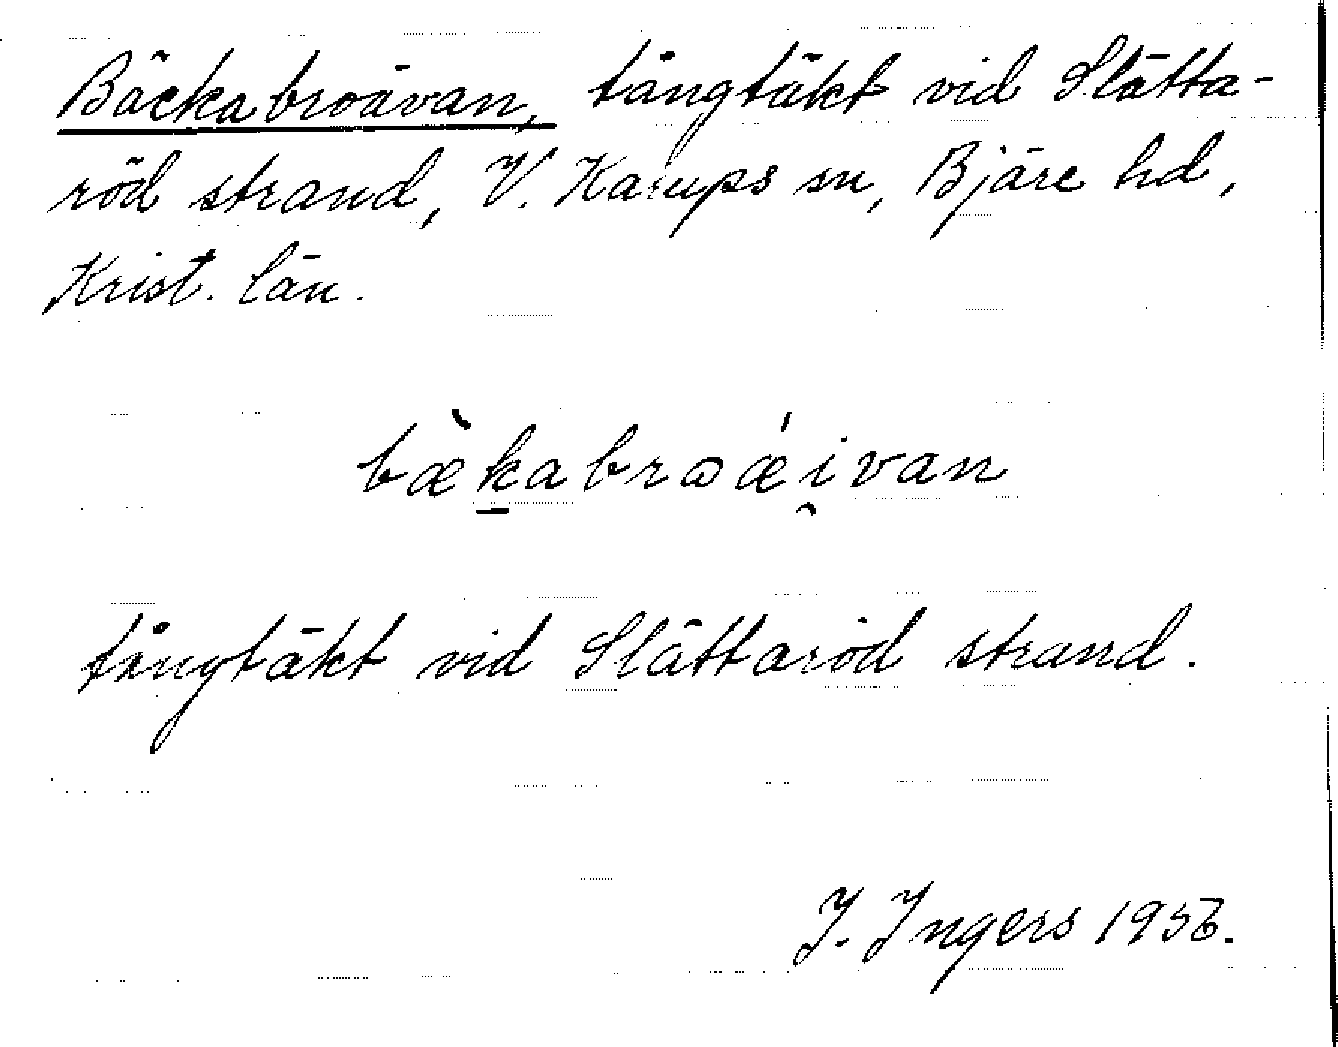 Bäckabroävan, tångtäkt vid Slätta-
röd strand, V. Karups sn, Bjäre hd,
Krist. län.
bæ̀kabrωǽi̯van
tångtäkt vid Slättaröd strand.
I. Ingers